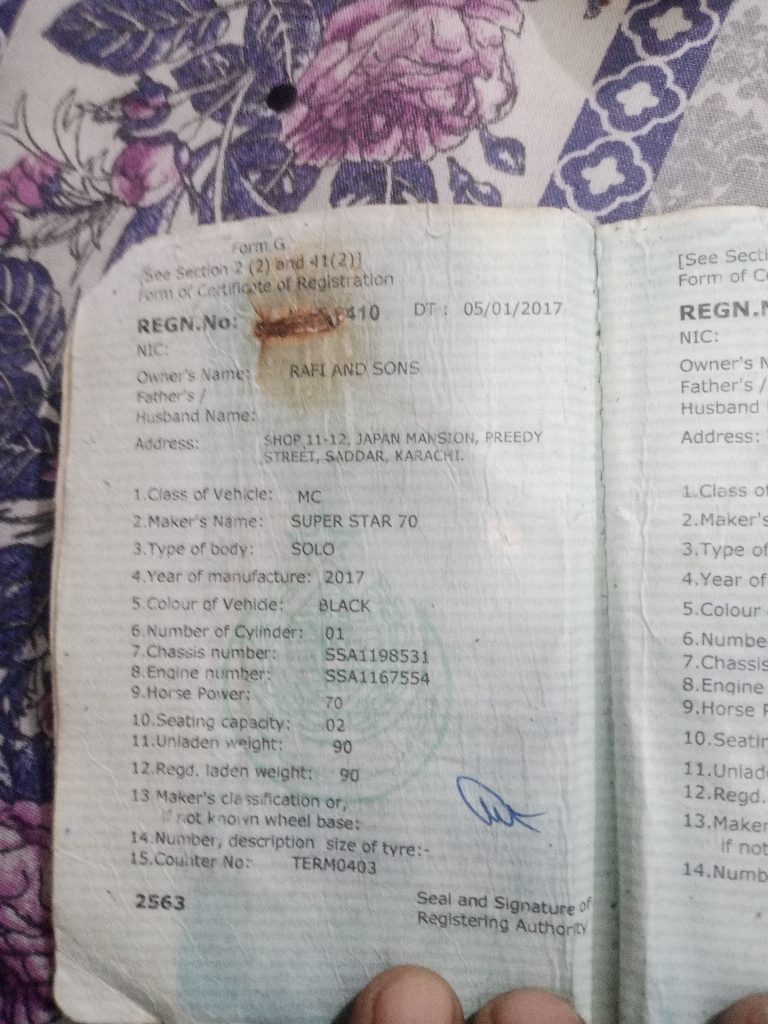 Form G
[See Section 2 (2) and 41(2)]
Form of Certificate of Registration
REGN.No: 410 DT : 05/01/2017
NIC:
Owner's Name: RAFI AND SONS
Father's /
Husband Name:
Address: SHOP 11-12, JAPAN MANSION, PREEDY
STREET, SADDAR, KARACHI.
1.Class of Vehicle: MC
2.Maker's Name: SUPER STAR 70
3.Type of body: SOLO
4.Year of manufacture: 2017
5.Colour of Vehicle: BLACK
6.Number of Cylinder: 01
7.Chassis number: SSA1198531
8.Engine number: SSA1167554
9.Horse Power: 70
10.Seating capacity: 02
11.Unladen weight: 90
12.Regd. laden weight: 90
13 Maker's classification or,
if not known wheel base:
14.Number, description size of tyre:-
15.Counter No: TERM0403
2563
Seal and Signature of
Registering Authority
[See Secti
Form of Ce
REGN.N
NIC:
Owner's N
Father's /
Husband
Address:
1.Class of
2.Maker's
3.Type of
4.Year of
5.Colour
6.Numbe
7.Chassis
8.Engine
9.Horse P
10.Seatin
11.Unlade
12.Regd.
13.Maker
if not
14.Numb